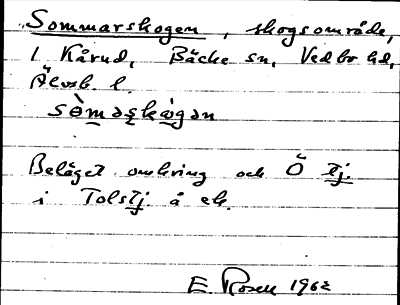 Sommarskogen, skogsområde,
i Kårud, Bäcke sn, Vedbo hd,
Älvsb. l.
sòmaskågan
Beläget omkring och Ö tj.
i Tolstj. å ek.
E. Rosen 1962